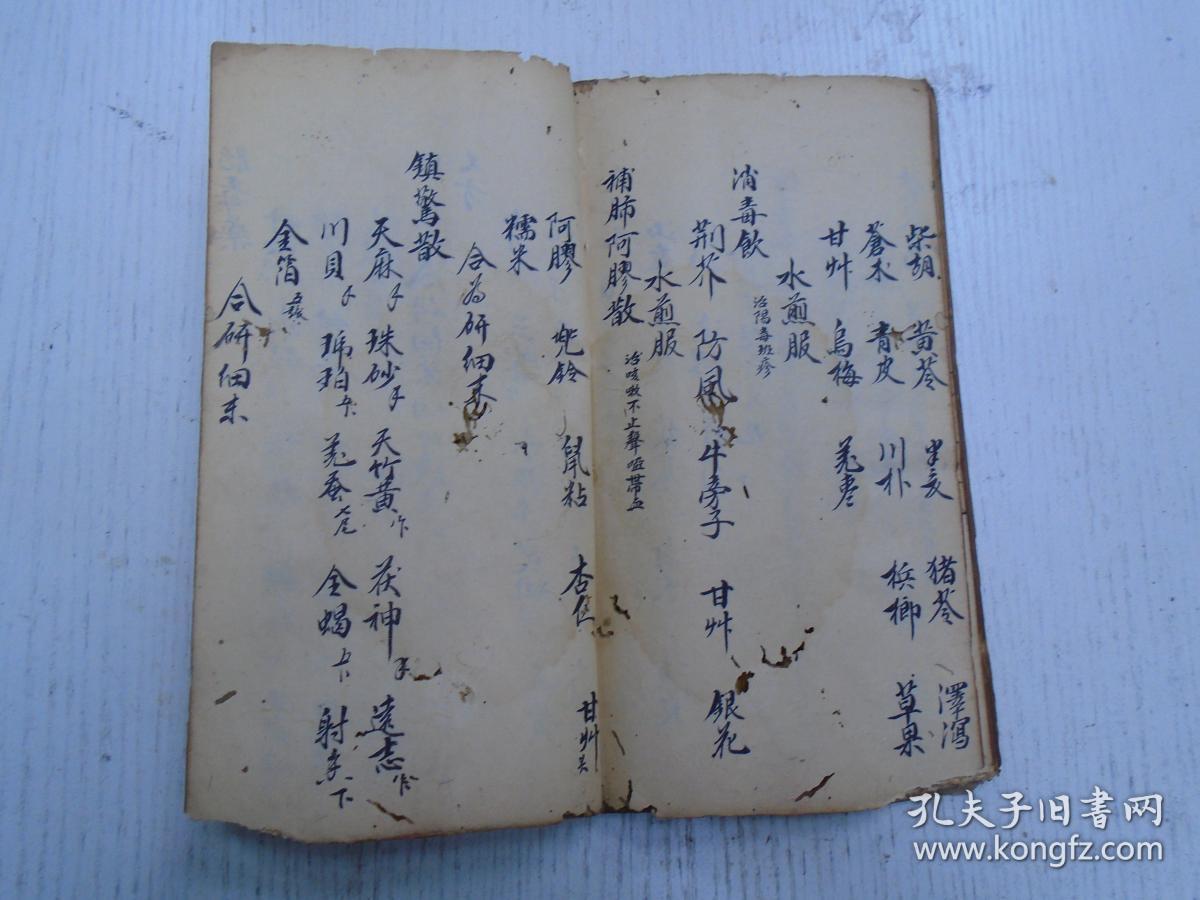 柴胡 黄芩 半夏 猪苓 澤瀉
蒼术 青皮 川朴 梹榔 草果
甘艸 烏梅 羌枣
水煎服
消毒飲 治陽毒斑疹
荆芥 防風 牛旁子 甘艸 銀花
水煎服
補肺阿膠散 治咳嗽不止聲哑帶血
阿膠 兜铃 鼠粘 杏仁 甘艸
糯米
合為研细末
鎮驚散
天麻 珠砂 天竹黄 茯神 遠志
川貝 琥珀 羌蚕 全蝎 射香
金箔
合研细末
孔夫子旧书网
www.kongfz.com